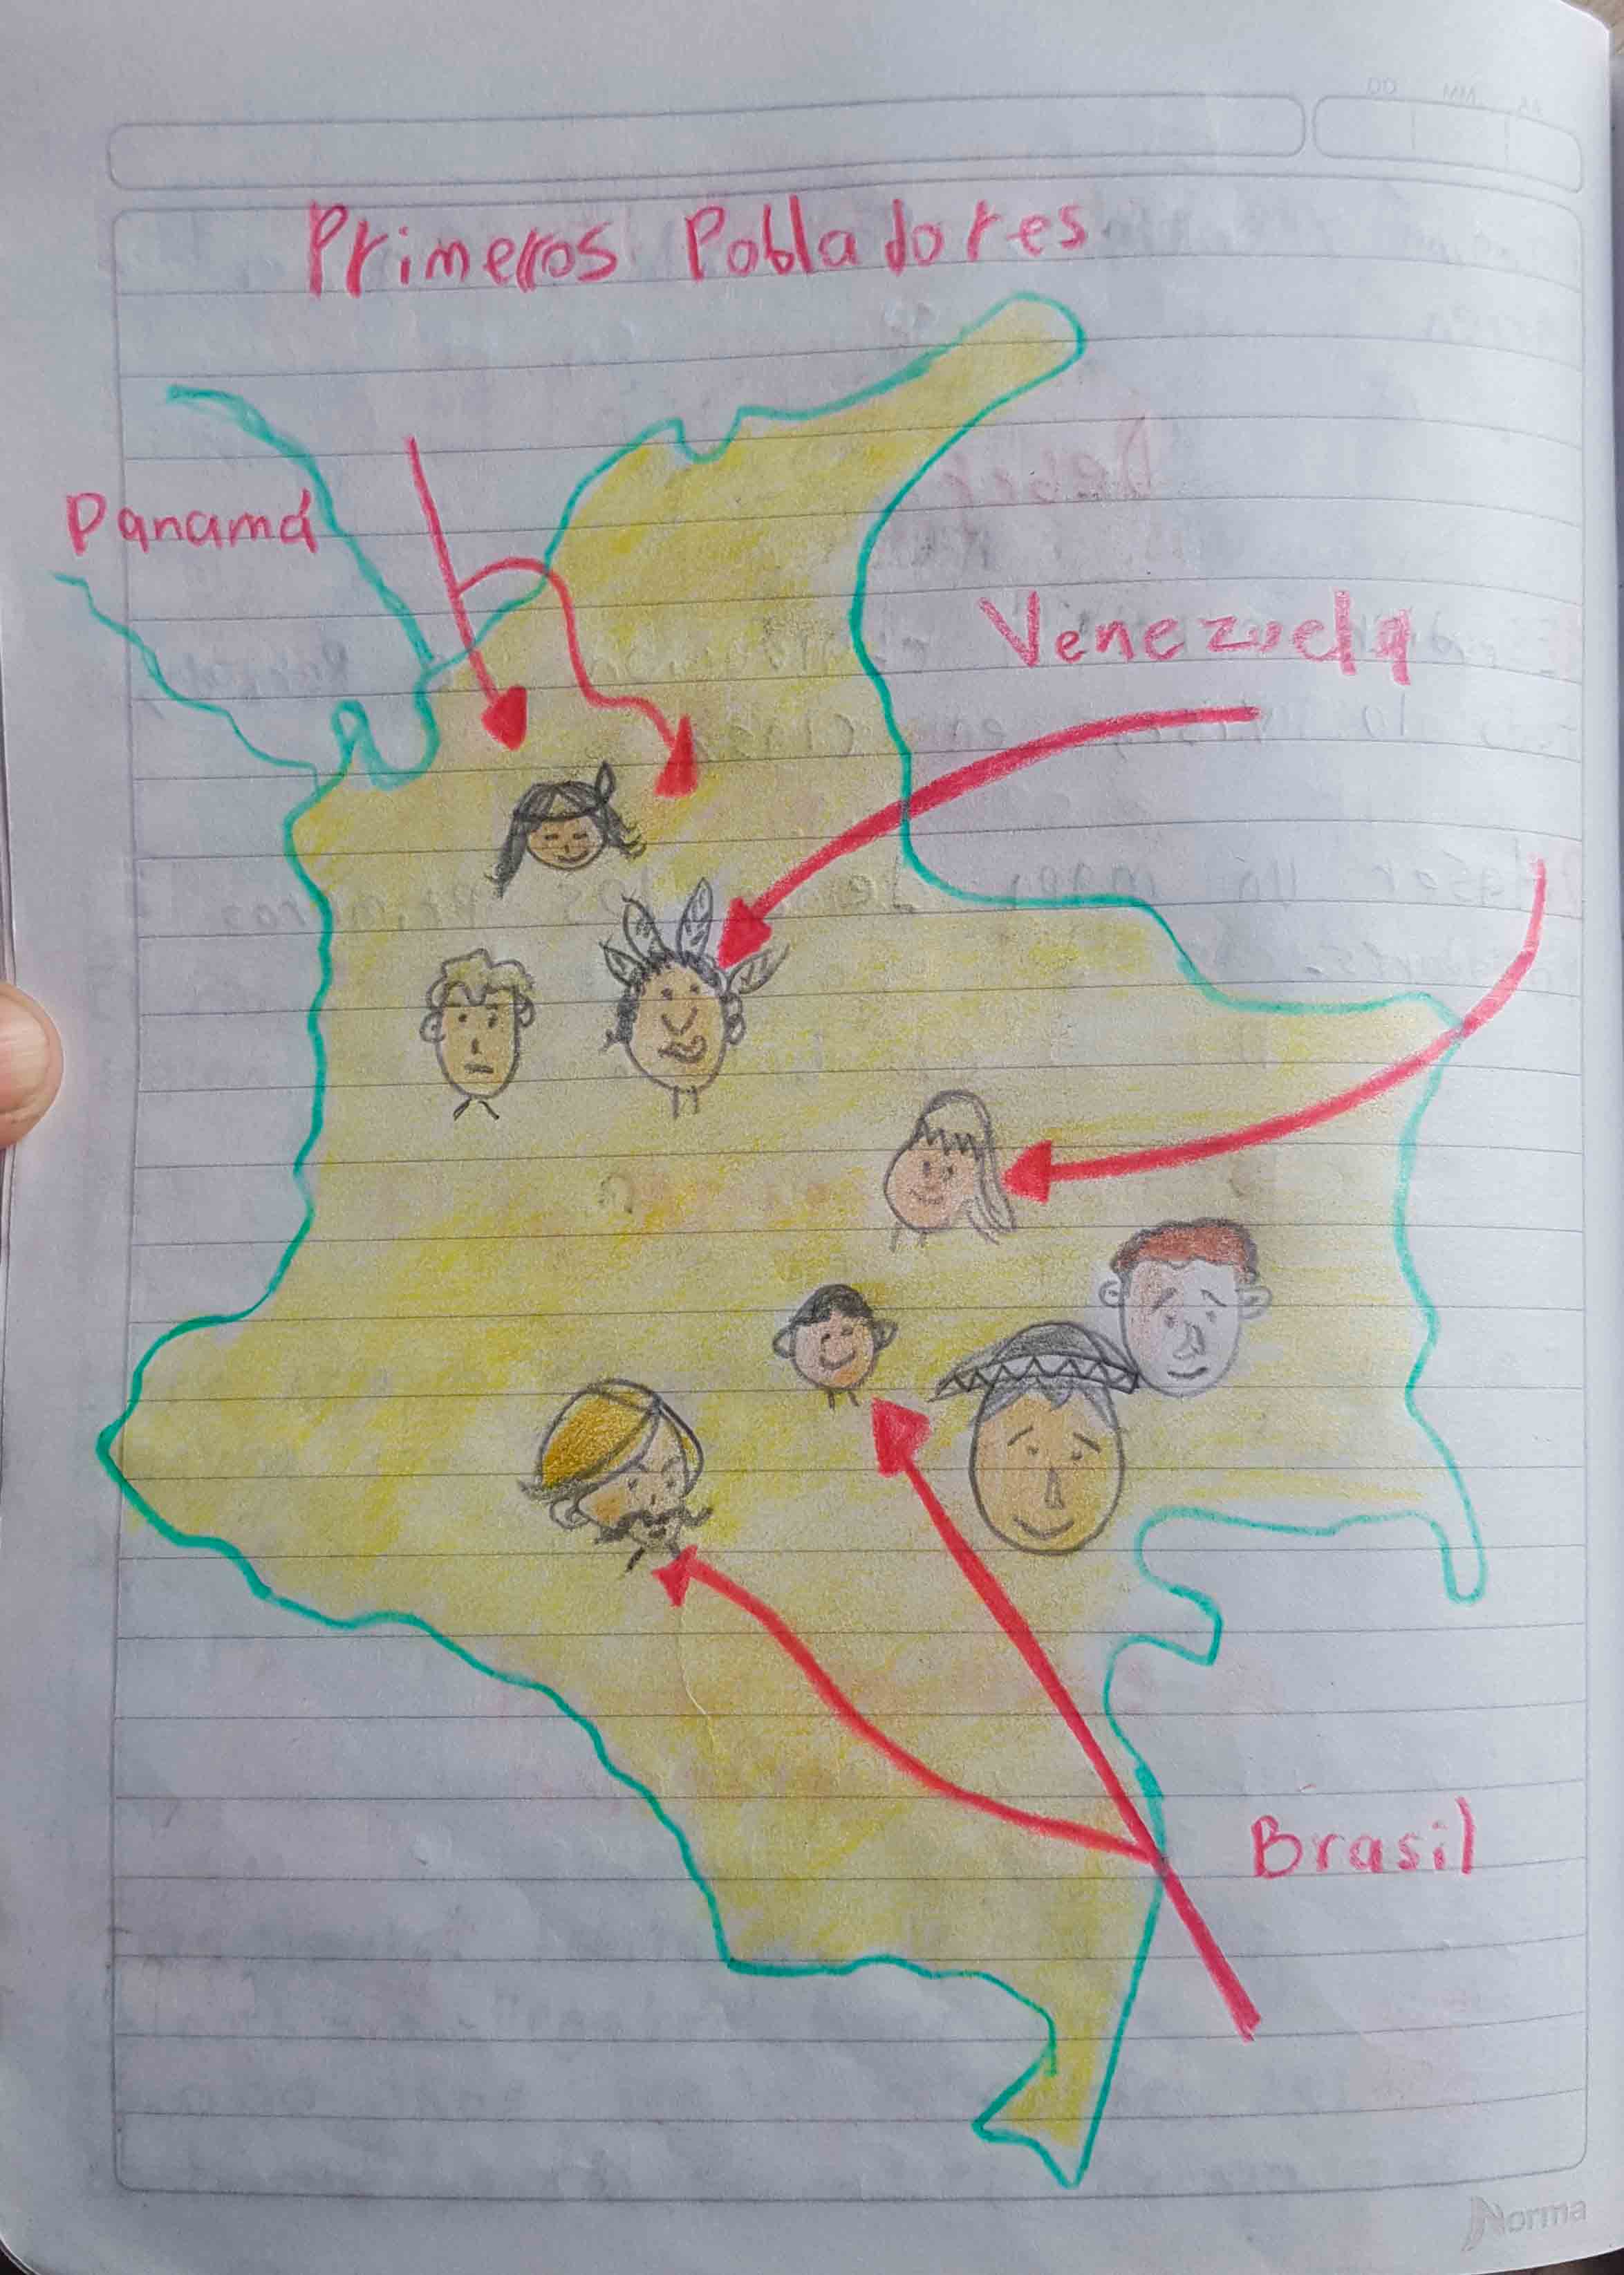 Primeros Pobladores
Panamá
Venezuela
Brasil
Norma